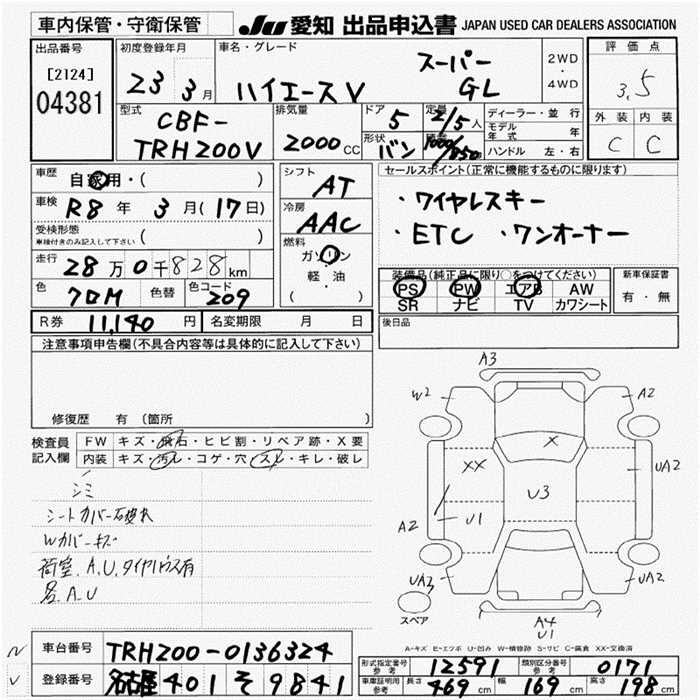 車内保管・守衛保管
JU 愛知 出品申込書 JAPAN USED CAR DEALERS ASSOCIATION
出品番号
[2124]
04381
初度登録年月
23 3月
車名・グレード
ハイエースV スーパーGL
2WD
・
4WD
評価点
3.5
外装 内装
C C
型式
CBF-
TRH200V
排気量
2000cc
ドア 5
形状 バン
定員 2/5人
積載 1000/850
ディーラー・並行
モデル年式 年
ハンドル 左・右
車歴
自家用・( )
車検
R8年 3月(17日)
受検形態
車検付きのみ記入して下さい ( )
走行
28万0千828km
色 クロM 色替 色コード 209
シフト AT
冷房 AAC
燃料
ガソリン
・
軽・油
( )
セールスポイント(正常に機能するものに限ります)
・ワイヤレスキー
・ETC ・ワンオーナー
装備品(純正品に限り○をつけてください)
PS PW エアB AW
SR ナビ TV カワシート
新車保証書
有・無
後日品
R券 11,140円 名変期限 月 日
注意事項申告欄(不具合内容等は具体的に記入して下さい)
修復歴 有(箇所 )
検査員記入欄
FW キズ・飛石・ヒビ割・リペア跡・X要
内装 キズ・汚レ・コゲ・穴・スレ・キレ・破レ
シミ
シートカバー破れ
Wカバーキズ
A.U.タイヤハウス有
A.U
A3
W2
A2
X
XX
UA2
U3
U1
A2
UA3
UA2
スペア
A4
U1
A-キズ E-エクボ U-凹み W-補修跡 S-サビ C-腐食 XX-交換済
車台番号 TRH200-0136324
登録番号 名古屋 401 そ 9841
形式指定番号 参考 12591 類別区分番号 参考 0171
車庫証明用 参考 長さ 469cm 幅 169cm 高さ 198cm